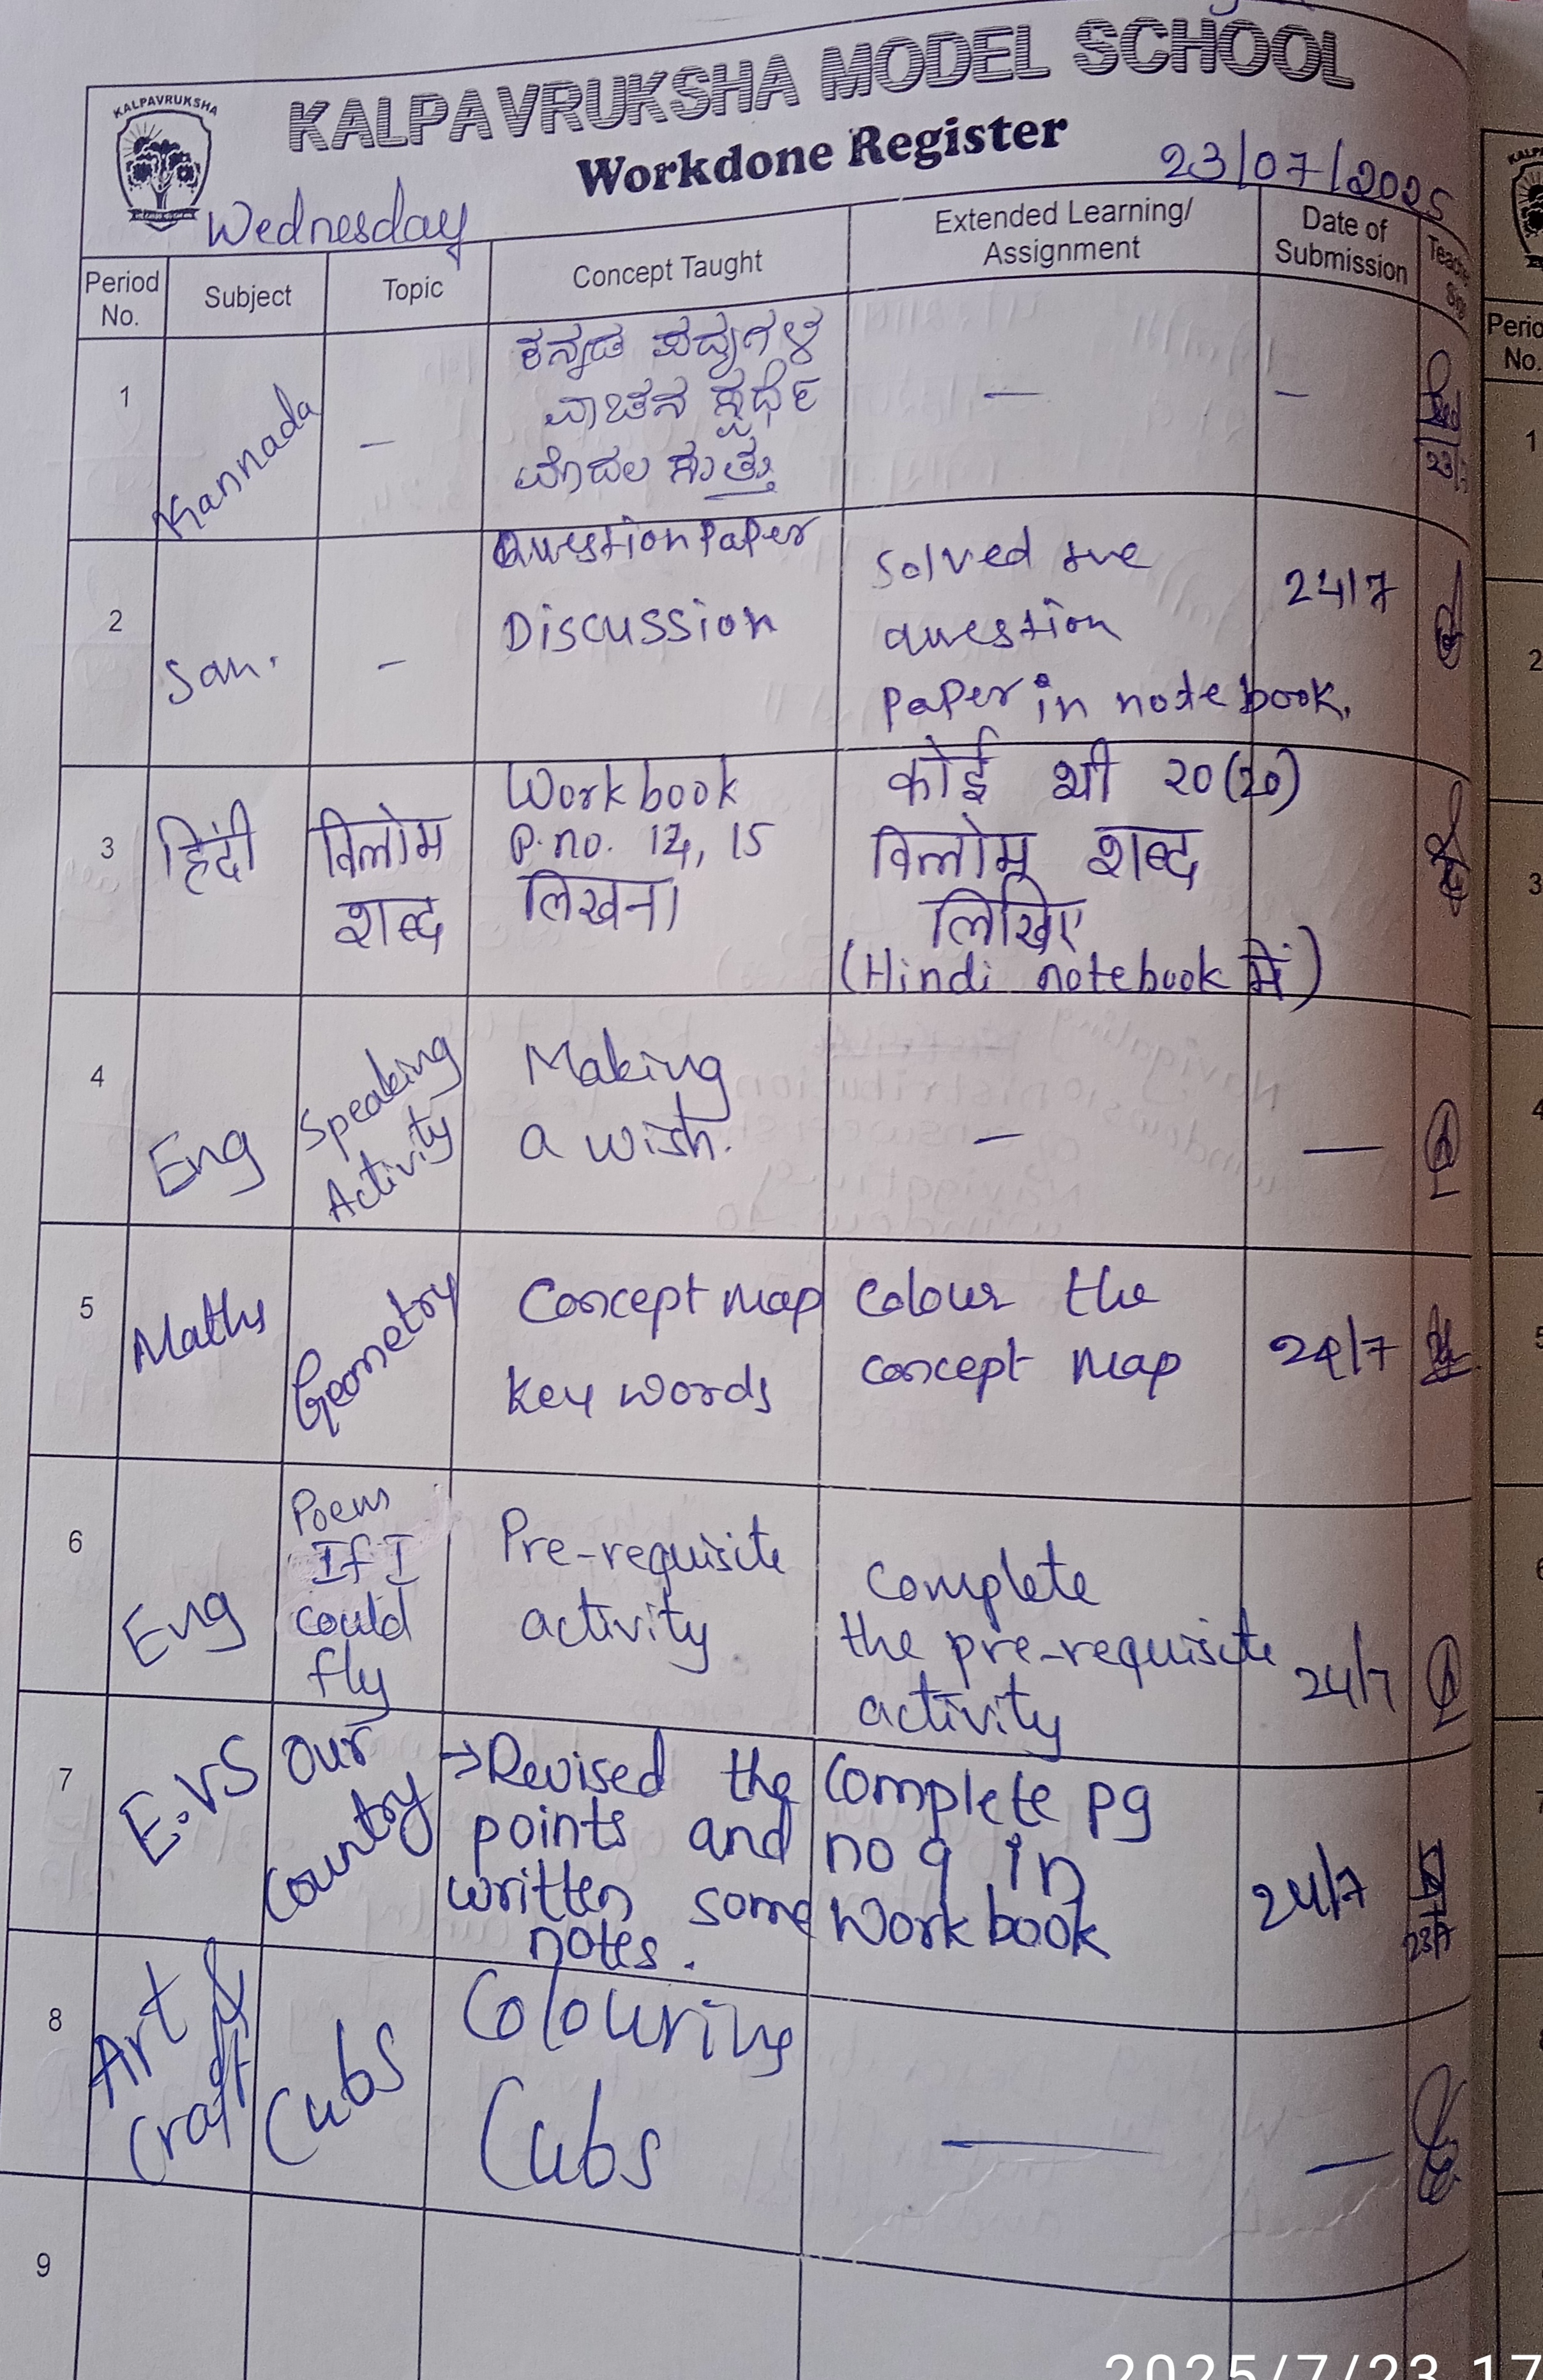 KALPAVRUKSHA MODEL SCHOOL
KALPAVRUKSHA
Workdone Register
23/07/2025
Wednesday
Period No.
Subject
Topic
Concept Taught
Extended Learning/ Assignment
Date of Submission
1
Kannada
-
ಕನ್ನಡ ಪದ್ಯಗಳ
ವಾಚನ ಸ್ಪರ್ಧೆ
ಮೊದಲ ಸುತ್ತು
-
-
23/
2
San.
-
Question Paper
Discussion
Solved the
question
paper in notebook.
24/7
3
हिंदी
विलोम
शब्द
Workbook
P.no. 14, 15
लिखना
कोई भी २०(20)
विलोम शब्द
लिखिए
(Hindi notebook में)
4
Eng
Speaking
Activity
Making
a wish.
-
-
5
Maths
Geometry
Concept Map
Key words
Colour the
concept Map
24/7
6
Eng
Poem
If I
could
fly
Pre-requisite
activity
Complete
the pre-requisite
activity
24/7
7
E.VS
Our
Country
→Revised the
points and
written some
notes.
Complete pg
no 9 in
Work book
24/7
23/7
8
Art &
Craft
Cubs
Colouring
Cubs
-
-
9
Period
No.
1
2
3
4
2025/7/23 17